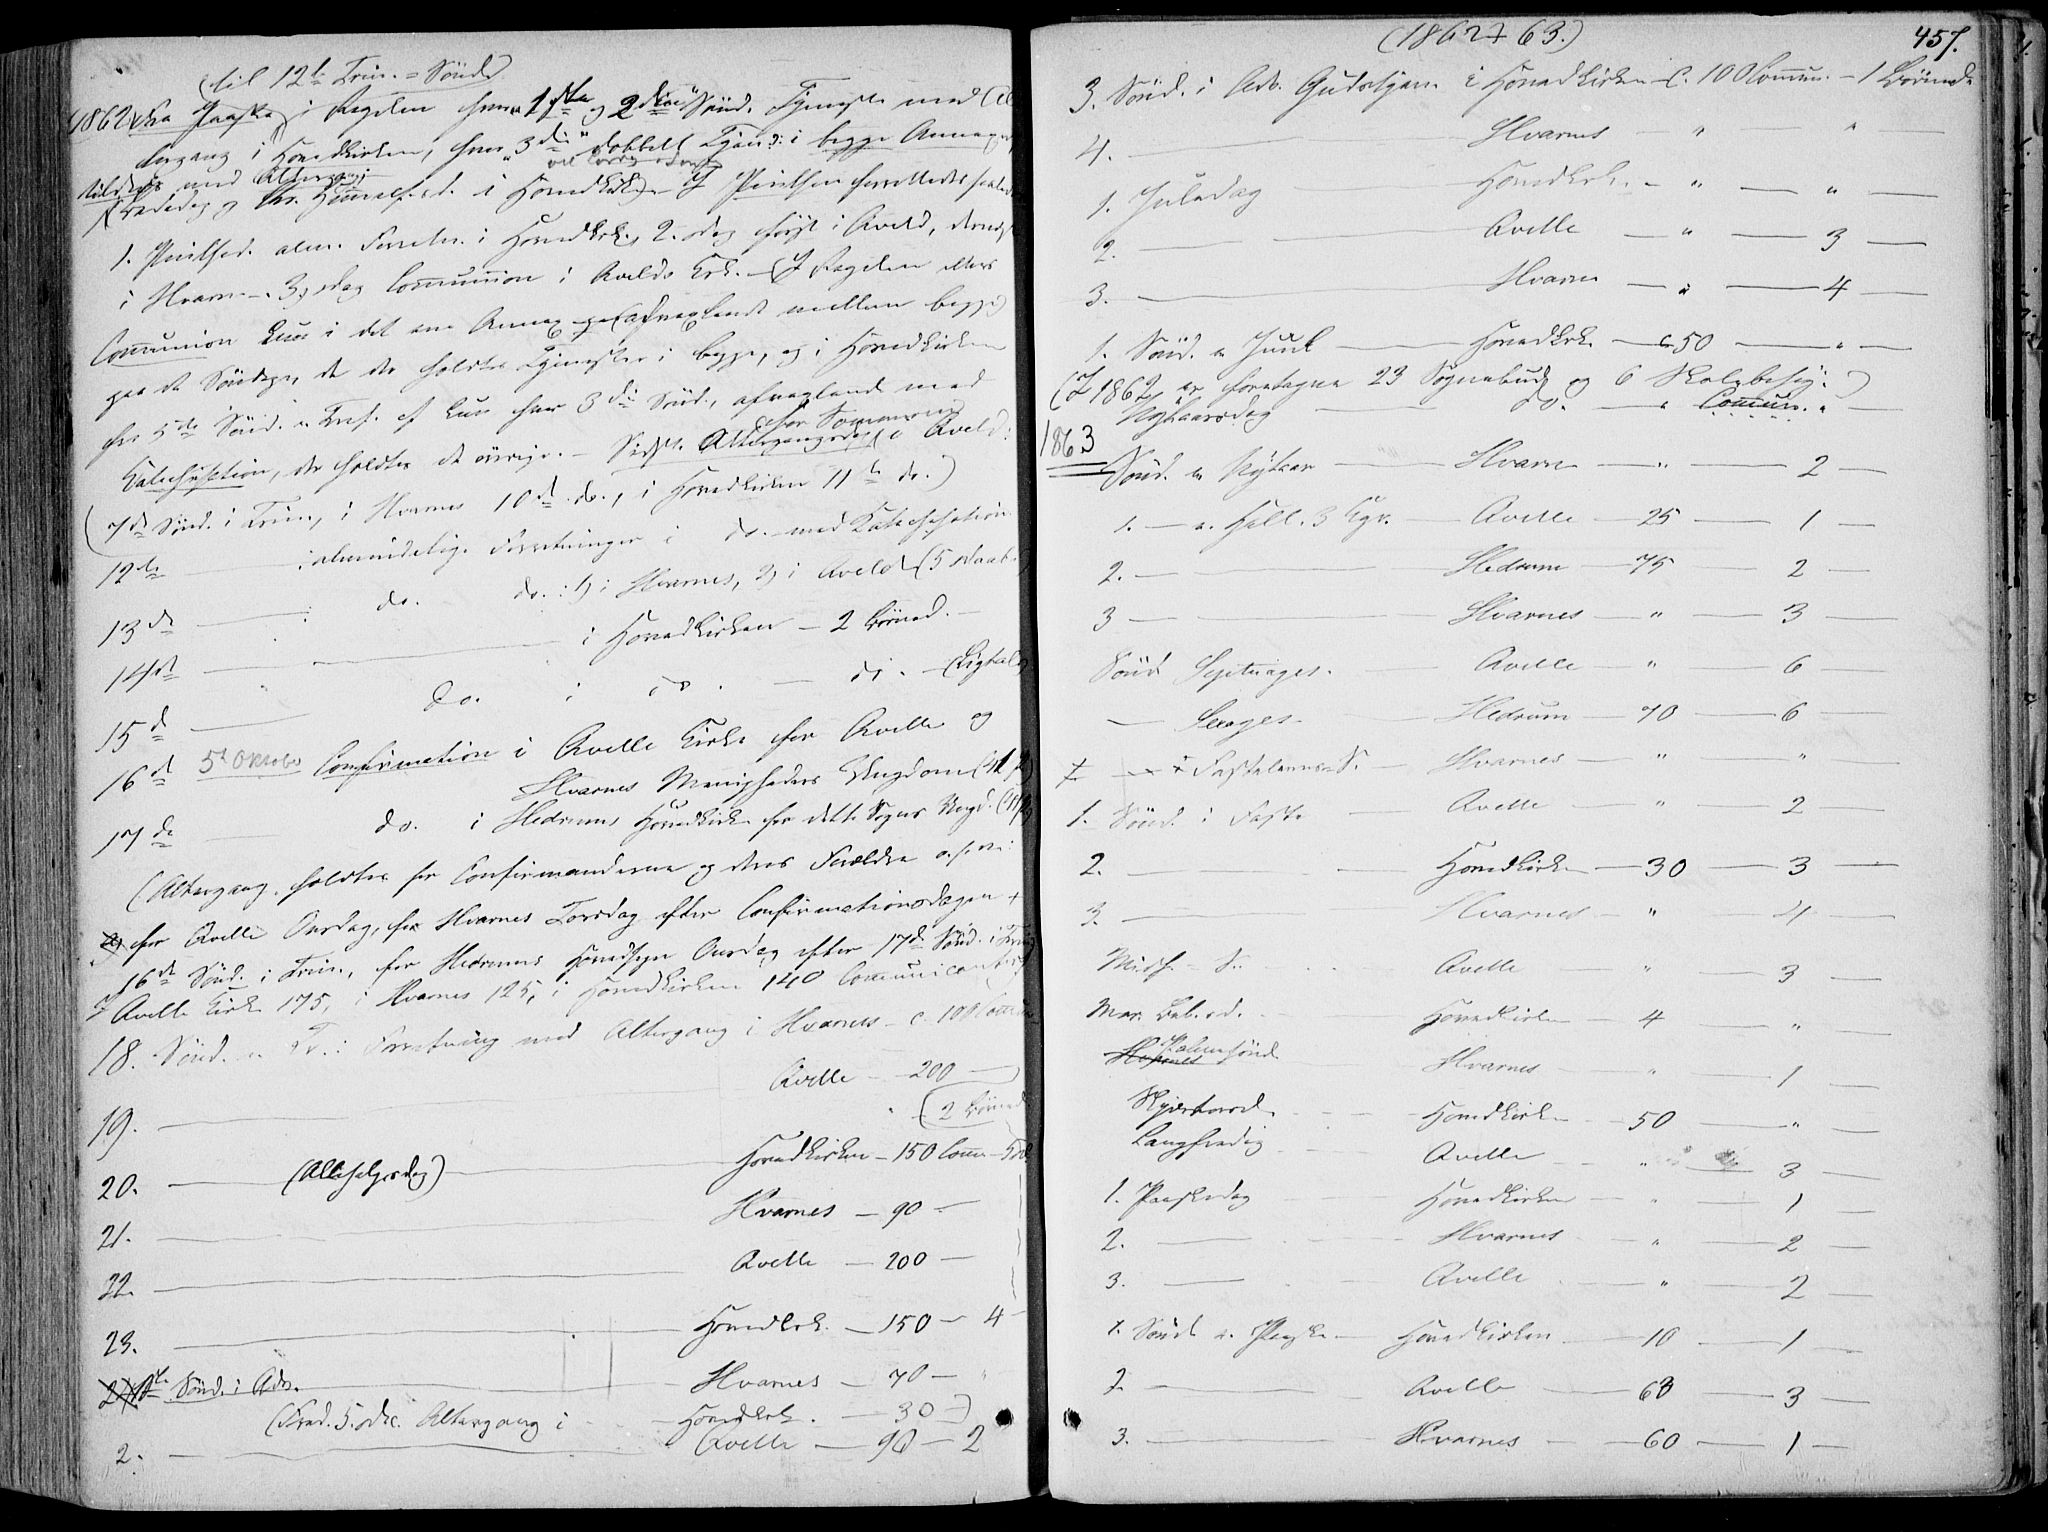 (til 12te Trin. = Sönd.)
1862 Fra Paaske i Regelen hver 1ste og 2den Sönd. Tjeneste med Al-
tergang i Hovedkirken, hver 3die dobbelt Tjen. i begge Annexer
med Altergang
i Hovedkirk. I Pintsen forrettedes
1. Pintsed. alm. Forretn. i Hovedkrk., 2. Dag först i Aveld, dernæst
i Hvarn. - 3. Dag Communion i Avelds Krk. - (I Regelen ellers
Communion kun i det ene Annex (afvexlende mellem begge)
paa de Söndage, da der holdtes Tjenester i begge, og i Hovedkirken
fra 5te Sönd. e. Tref. kun hver 3die Sönd., afvexlende med
for Sommeren
Katechisation, der holdtes de övrige. - Sidste Altergangsdag i Aveld:
(7de Sönd. i Trin., i Hvarnes 10de do., i Hovedkirken 11te do.)
12te — : almindelig Forretninger i do. med Katechisation.
13de — : do. do.: 1) i Hvarnes, 2) i Aveld (5 Daab)
14de — i Hovedkirken - 2 Börned.
15de — do. i do. — do. - (Ligtale)
16de 5te Oktober Confirmation i Avelle Kirke for Avelle og
Hvarnes Menigheders Ungdom
17de do. i Hedrums Hovedkirke for dette Sogns Ungd.
(Altergang holdtes for Confirmanderne og deres Forældre
for Avelle Onsdag, for Hvarnes Torsdag efter Confirmationsdagen
16de Sönd. i Trin., for Hedrums Hovedsogn Onsdag efter 17de Sönd. i Trin.
I Avelle Kirke 175, i Hvarnes 125, i Hovedkirken 140 Communicanter)
18. Sönd. e. Tr.: Forretning med Altergang i Hvarnes - c. 100 Comm
19. — Avelle - 200 —
(2 Börned
20. — (Allehelgesdag) — Hovedkirken - 150 Comm
21. — Hvarnes - 90 -
22. — Avelle - 200 —
23. — Hovedkrk. - 150 - 4
1ste Sönd. i Adv. — Hvarnes - 70 - "
(Fred. 5. Dec. Altergang i Hovedkrk. - 30 -)
2. — Avelle - 90 - 2
(1862 + 63.) 457.
3. Sönd. i Adv. Gudstjen. i Hovedkirken - c. 100 Commun. - 1 Börned.
4. — Hvarnes - " — "
1. Juledag — Hovedkrk. - " — " —
2. — Avelle — " — 3 —
3. — Hvarnes — " — 4 —
1. Sönd. e. Juul — Hovedkrk. — c. 50 — " —
(I 1862 er foretagne 23 Sognebud og 6 Skolebesög.)
Nytaarsdag — do. — " Commun. " —
1863
Sönd. e. Nytaar — Hvarn — " — 2 —
1. — e. Hell. 3 Kgr. — Avelle — 25 — 1 —
2. — Hedrum — 75 — 2 —
3 — Hvarnes — " — 3 —
Sönd. Septuages. — Avelle — " — 6
— Sexages. — Hedrum — 70 — 6 —
Fastelavns-S. — Hvarnes — " — "
1. Sönd. i Faste — Avelle — " — 2 —
2. — Hovedkirken — 30 — 3 —
3. — Hvarnes — " — 4 —
Midf. - S. Avelle " — 3 —
Mar. Beb.d. Hovedkirken — 4 — " —
Palmesönd. Hvarnes — " — 1 —
Skjertorsd. — Hovedkirk — 50 — " —
Langfredag Avelle — " — 3 —
1. Paaskedag — Hovedkirken — " — 1 —
2. — Hvarnes — " — 2 —
3. — Avelle — " — 2 —
1. Sönd. e. Paaske — Hovedkirken — 10 — 1 —
2. — Avelle — 63 — 3 —
3. — Hvarnes — 60 — 1 —